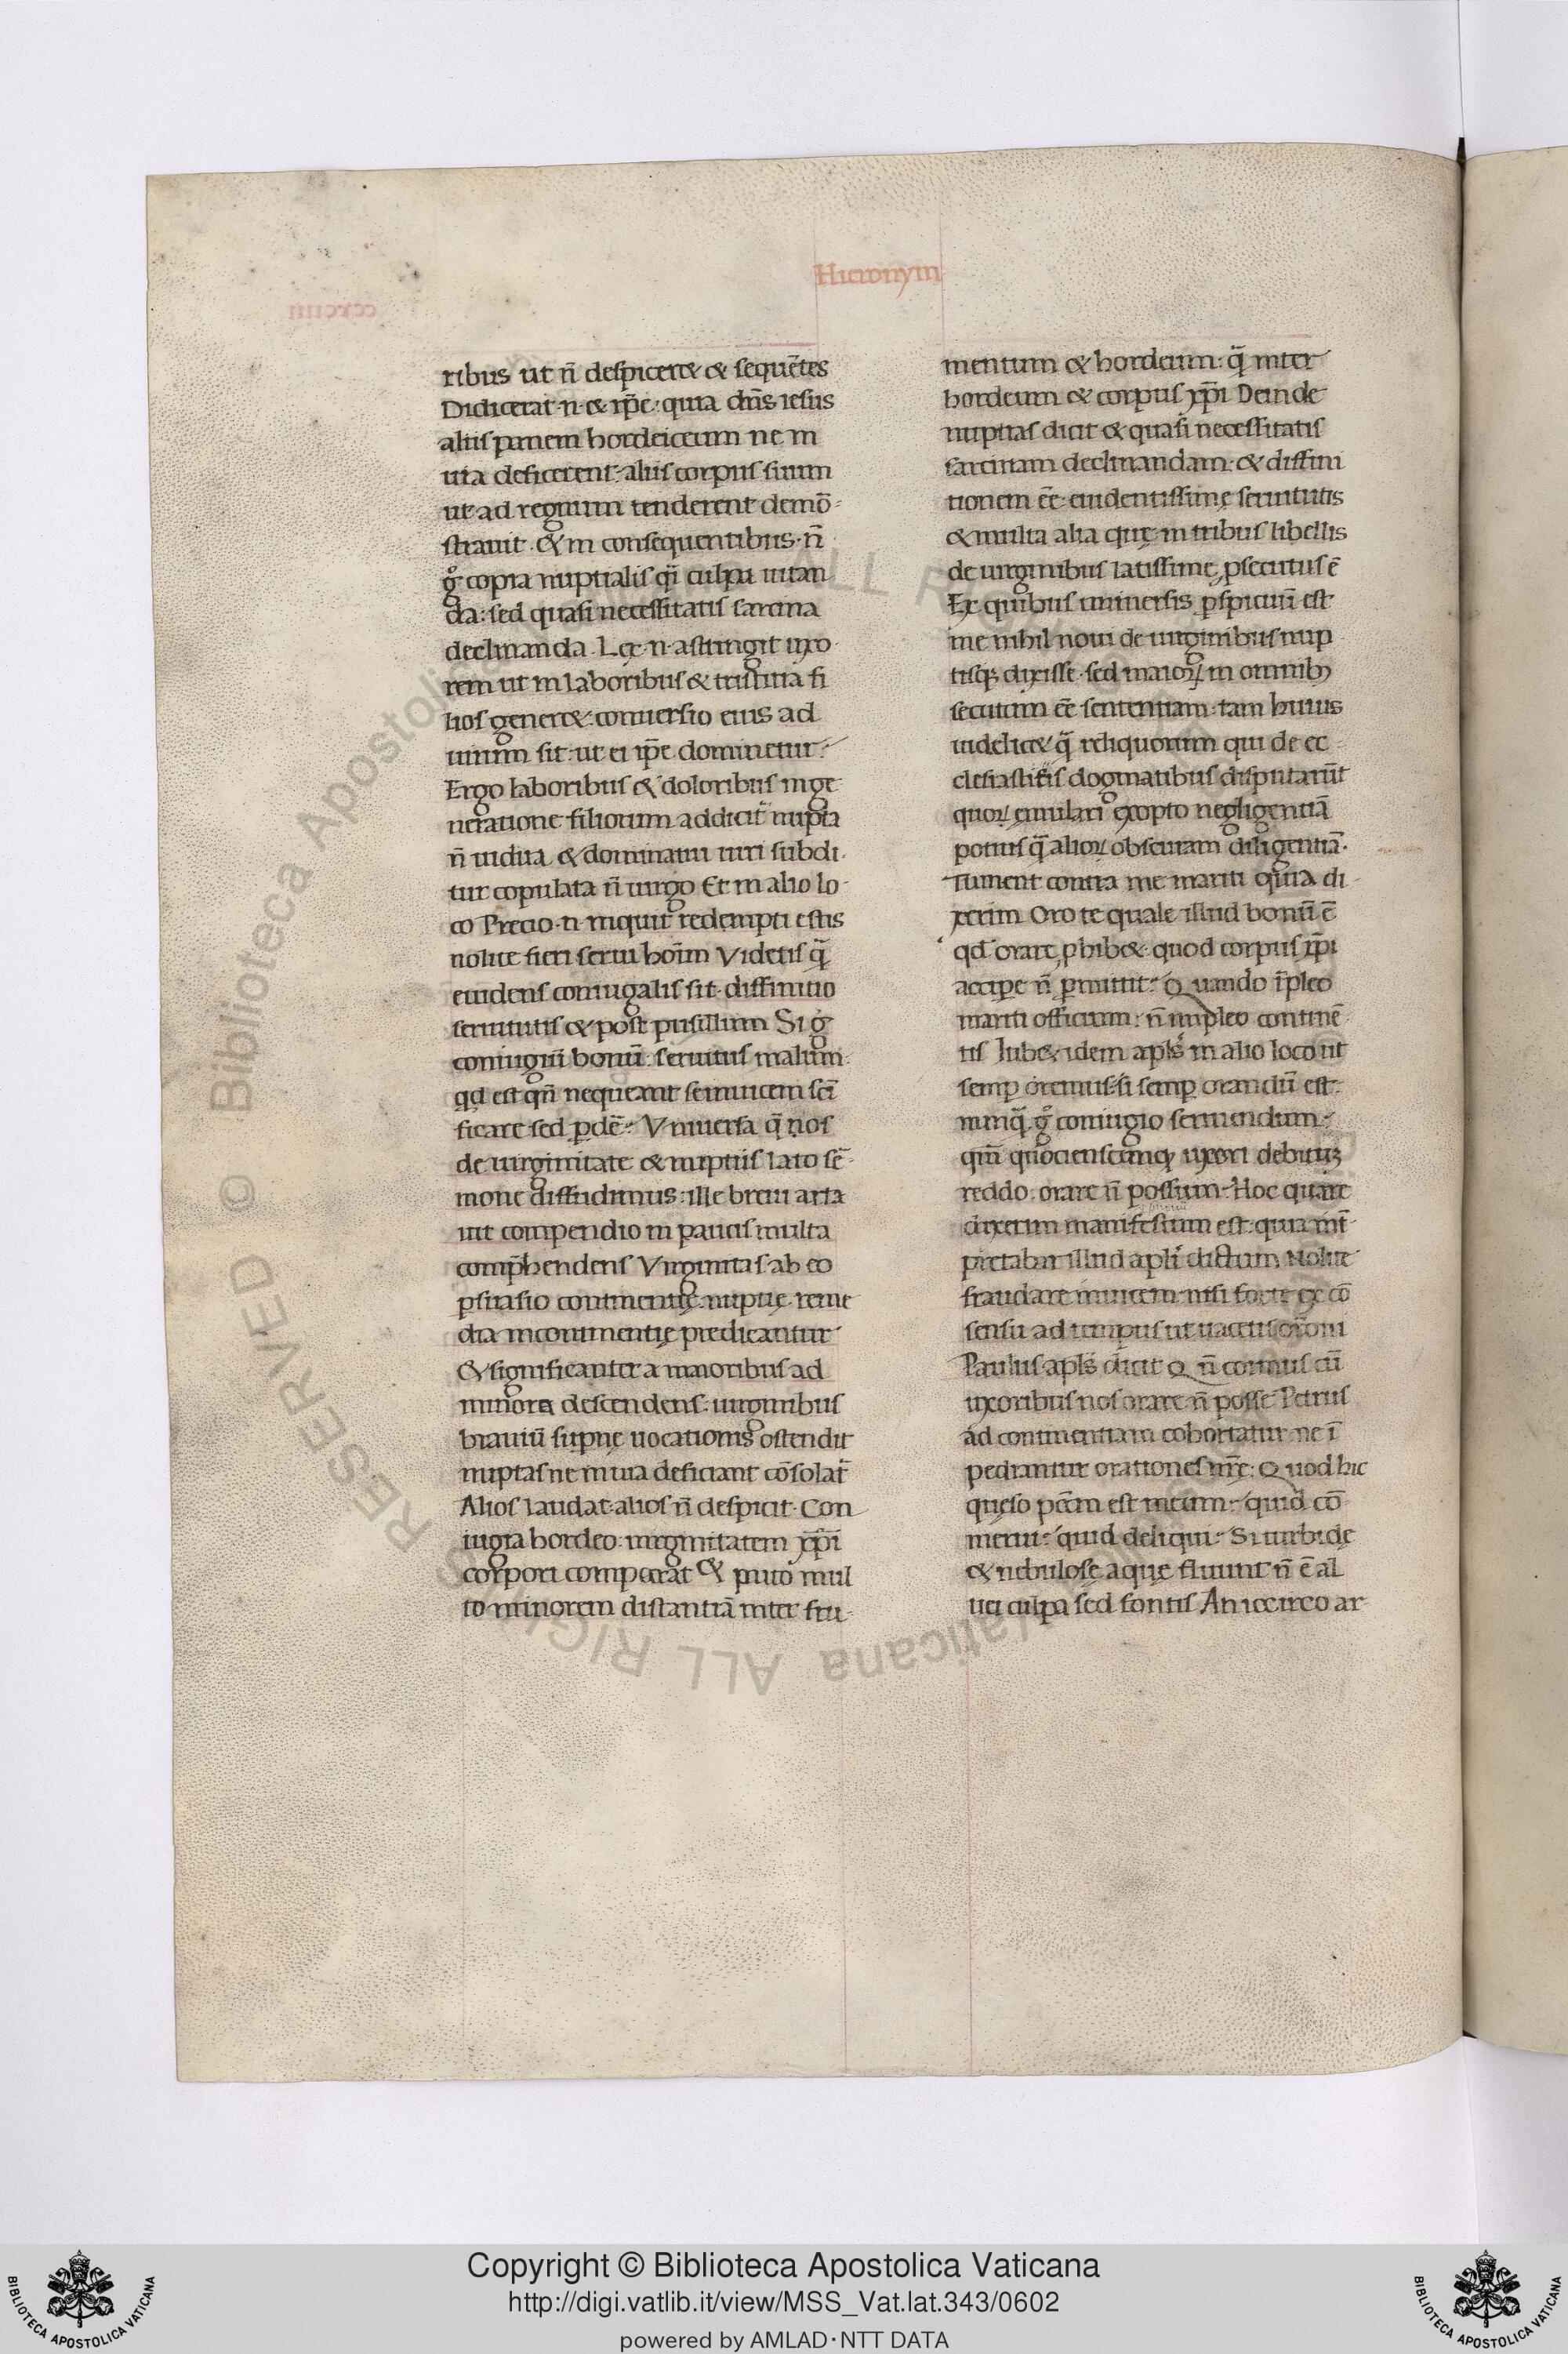 Hieronym
ribus ut n̄ despiceret & sequētes
Didicerat·n·& ip̄e: quia dn̄s iesus
aliis panem hordeiceum ne in
uia deficerent: aliis corpus suum
ut ad regnum tenderent demō-
strauit. & in consequentibus· n̄
gͦ copia nuptialis q̄i culpa uitan
da: sed quasi necessitatis sarcina
declinanda. Lex·n·astringit uxo
rem ut in laboribus & tristitia fi
lios generet: conuersio eius ad
uirum sit: ut ei ip̄e dominetur.
Ergo laboribus & doloribus in ge
neratione filiorum addicit̄ nupta
n̄ uidua. & dominatui uiri subdi
tur copulata n̄ uirgo Et in alio lo
co Precio·n·inquit redempti estis
nolite fieri serui hoīm Videtis q̄
euidens coniugalis sit diffinitio
seruitutis & post pusillum Si g͛
coniugiū bonū: seruitus malum:
qd est qn̄ nequeant se inuicem sc̄i
ficare sed ꝑdē. Vniuersa q̄ nos
de uirginitate & nuptiis lato sē
mone diffudimus: ille breui arta
uit compendio in paucis multa
comp̄hendens Virginitas ab eo
ꝑsuasio continentię nuptię reme
dia incontinentię predicantur
& significanter a maioribus ad
minora descendens: uirginibus
brauiū supnę uocationis ostendit
nuptas ne in uia deficiant cōsolat̄
Alios laudat·alios n̄ despicit· Con
iugia hordeo: uirginitatem xp̄i
corpori comparat & puto mul
to minorem distantiā inter fru
mentum & hordeum: q̄ inter
hordeum & corpus xp̄i Deinde
nuptias dicit & quasi necessitatis
sarcinam declinandam: & diffini
tionem eē euidentissimę seruitutis
& multa alia quę in tribus libellis
de uirginibus latissimę ꝓsecutus ē
Ex quibus uniuersis ꝑspicuū est
me nihil noui de uirginibus nup
tisq; dixisse· sed maioꝝ in omnib;
secutum eē sententiam· tam huius
uidelicet q̄ reliquorum qui de ec
clesiasticis dogmatibus disputarūt
quoꝝ emulari exopto negligentiā
potius q̄ alioꝝ obscuram diligentiā.
Tument contra me mariti quia di
xerim Oro te quale illud bonū ē
qd orare ꝓhibet· quod corpus xp̄i
accipe n̄ ꝑmittit. Quando īpleo
mariti officium: n̄ impleo continē
tis Iubet idem apl̄s in alio loco ut
semꝑ oremus: si semꝑ orandū est.
nunq̄ gͦ coniugio seruiendum.
qm̄ quocienscumq; uxori debitū
reddo: orare n̄ possum. Hoc quare
dixerim manifestum est: quia int̄
pretabar illud apl̄i dictum Nolite
fraudare inuicem nisi forte ex cō
sensu ad tempus ut uacetis or̄oni
Paulus apl̄s dicit Q n̄ coimus cū
uxoribus nos orare n̄ posse Petrus
ad continentiam cohortatur ne ī
pediantur orationes nr̄e: Quod hic
queso pcc̄m est meum: quid cō
merui: quid deliqui: Si turbidę
& nebulosę aquę fluunt n̄ ē al
uei culpa sed fontis An iccirco ar
Copyright © Biblioteca Apostolica Vaticana
http://digi.vatlib.it/view/MSS_Vat.lat.343/0602
powered by AMLAD·NTT DATA
BIBLIOTECA APOSTOLICA VATICANA
BIBLIOTECA APOSTOLICA VATICANA